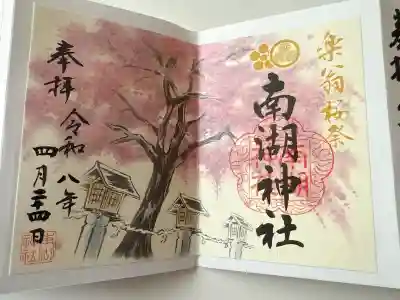 楽翁桜祭
南湖神社
奉拝
令和八年
四月二十四日